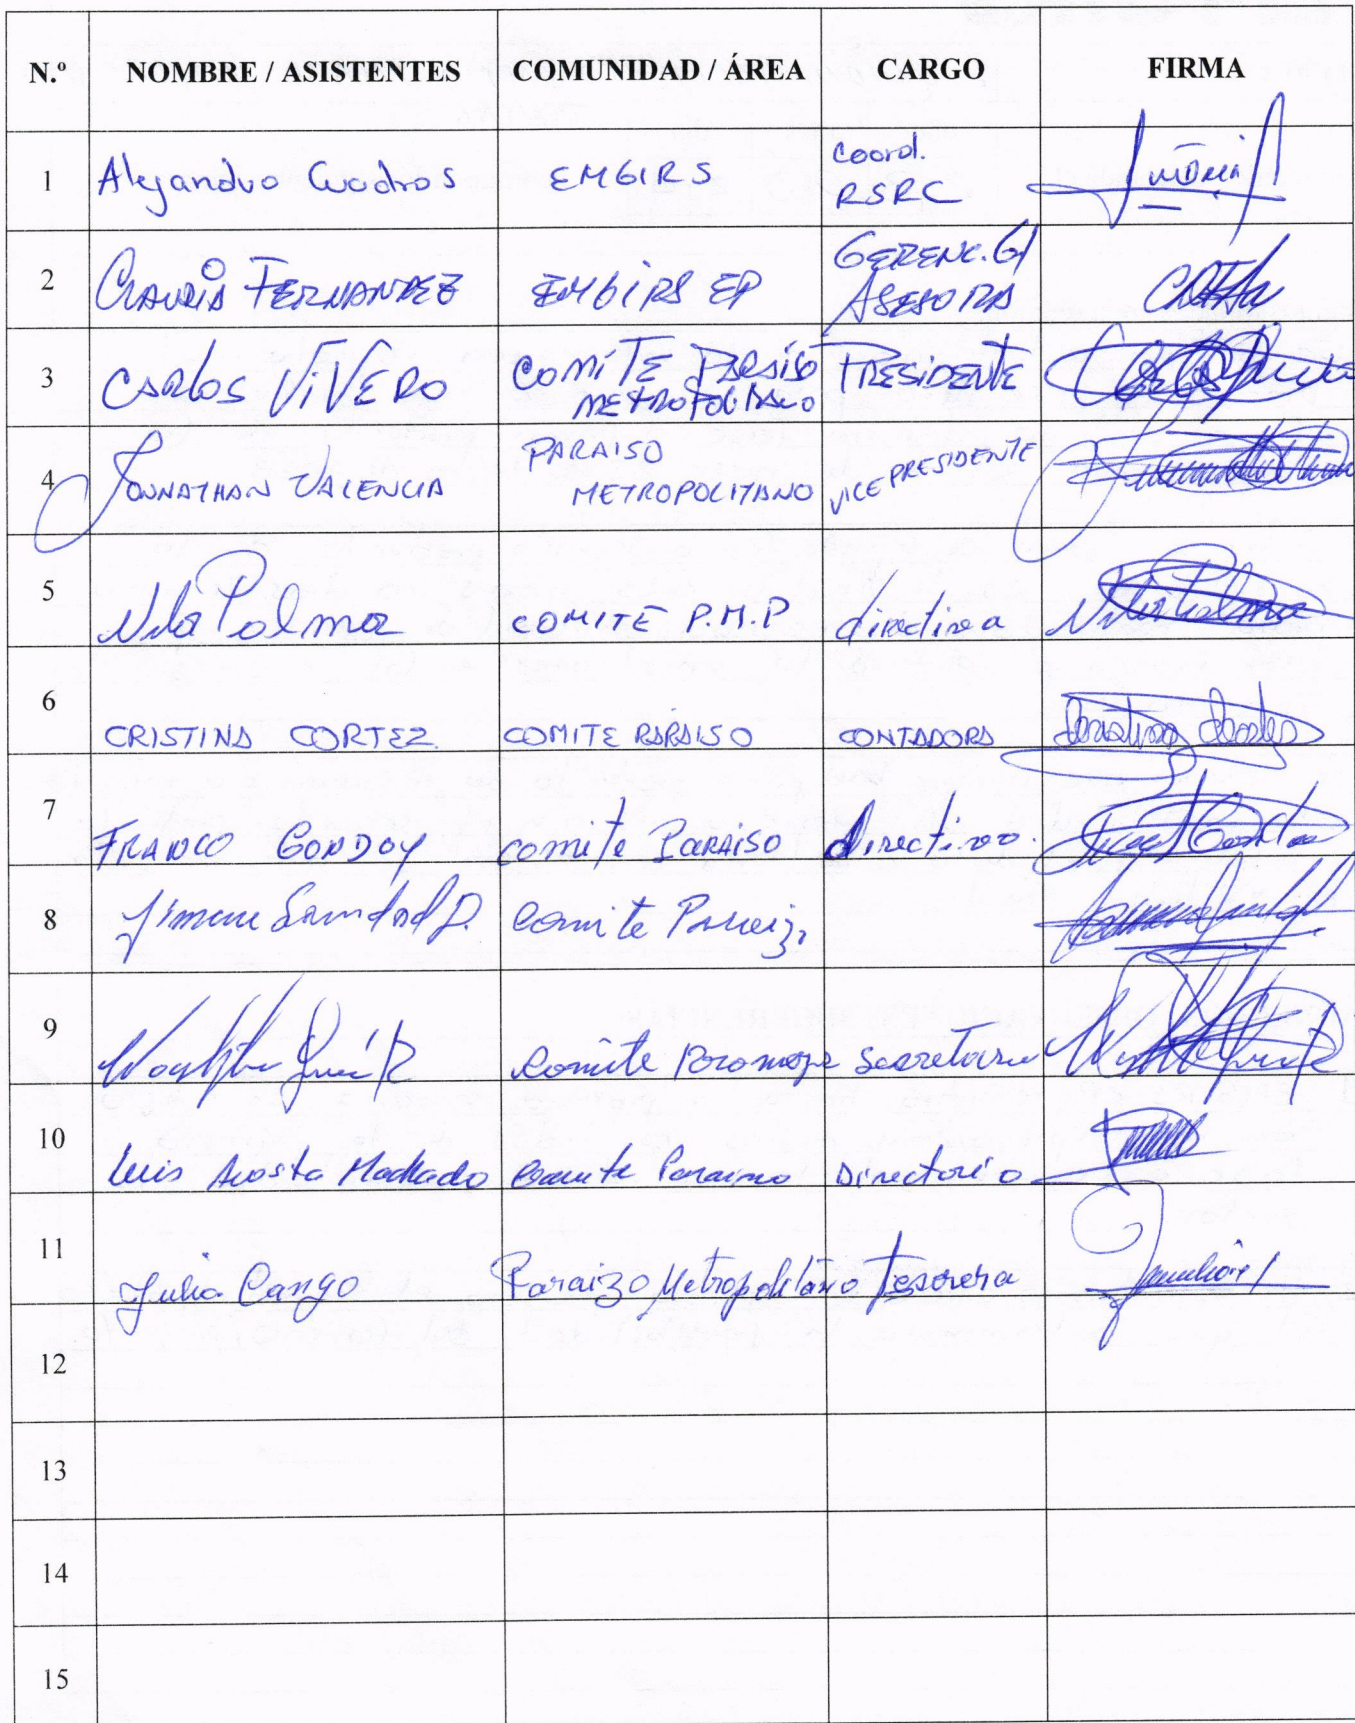 N.º NOMBRE / ASISTENTES COMUNIDAD / ÁREA CARGO FIRMA
1 Alejandro Cuadros EMGIRS Coord. RSRC
2 Claudia FERNANDEZ EMGIRS EP GERENC. G/ ASESORA
3 Carlos ViVERO COMiTE PARAÍSO METROPOLITANO PRESIDENTE
4 JONNATHAN VALENCIA PARAISO METROPOLITANO VICE PRESIDENTE
5 Nila Palma COMITÉ P.M.P directiva
6 CRISTINA CORTEZ COMITE PARAISO CONTADORA
7 FRANCO GONDOY comite PARAISO directivo.
8 Comite
9 Comite Secretario
10 Luis Acosta Machado Comite Paraiso Directorio
11 Julia Cango Paraizo Metropolitano Tesorera
12
13
14
15